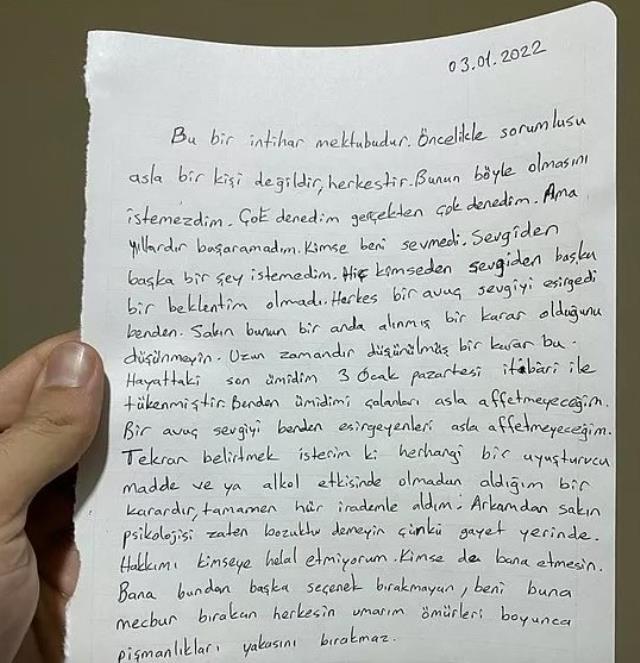 03.01.2022
Bu bir intihar mektubudur. Öncelikle sorumlusu
asla bir kişi değildir, herkestir. Bunun böyle olmasını
istemezdim. Çok denedim gerçekten çok denedim. Ama
yıllardır başaramadım. Kimse beni sevmedi. Sevgiden
başka bir şey istemedim. Hiç kimseden sevgiden başka
bir beklentim olmadı. Herkes bir avuç sevgiyi esirgedi
benden. Sakın bunun bir anda alınmış bir karar olduğunu
düşünmeyin. Uzun zamandır düşünülmüş bir karar bu.
Hayattaki son ümidim 3 Ocak pazartesi itibâri ile
tükenmiştir. Benden ümidimi çalanları asla affetmeyeceğim.
Bir avuç sevgiyi benden esirgeyenleri asla affetmeyeceğim.
Tekrar belirtmek isterim ki herhangi bir uyuşturucu
madde ve ya alkol etkisinde olmadan aldığım bir
karardır, tamamen hür irademle aldım. Arkamdan sakın
psikolojisi zaten bozuktu demeyin çünkü gayet yerinde.
Hakkımı kimseye helal etmiyorum. Kimse de bana etmesin.
Bana bundan başka seçenek bırakmayan, beni buna
mecbur bırakan herkesin umarım ömürleri boyunca
pişmanlıkları yakasını bırakmaz.